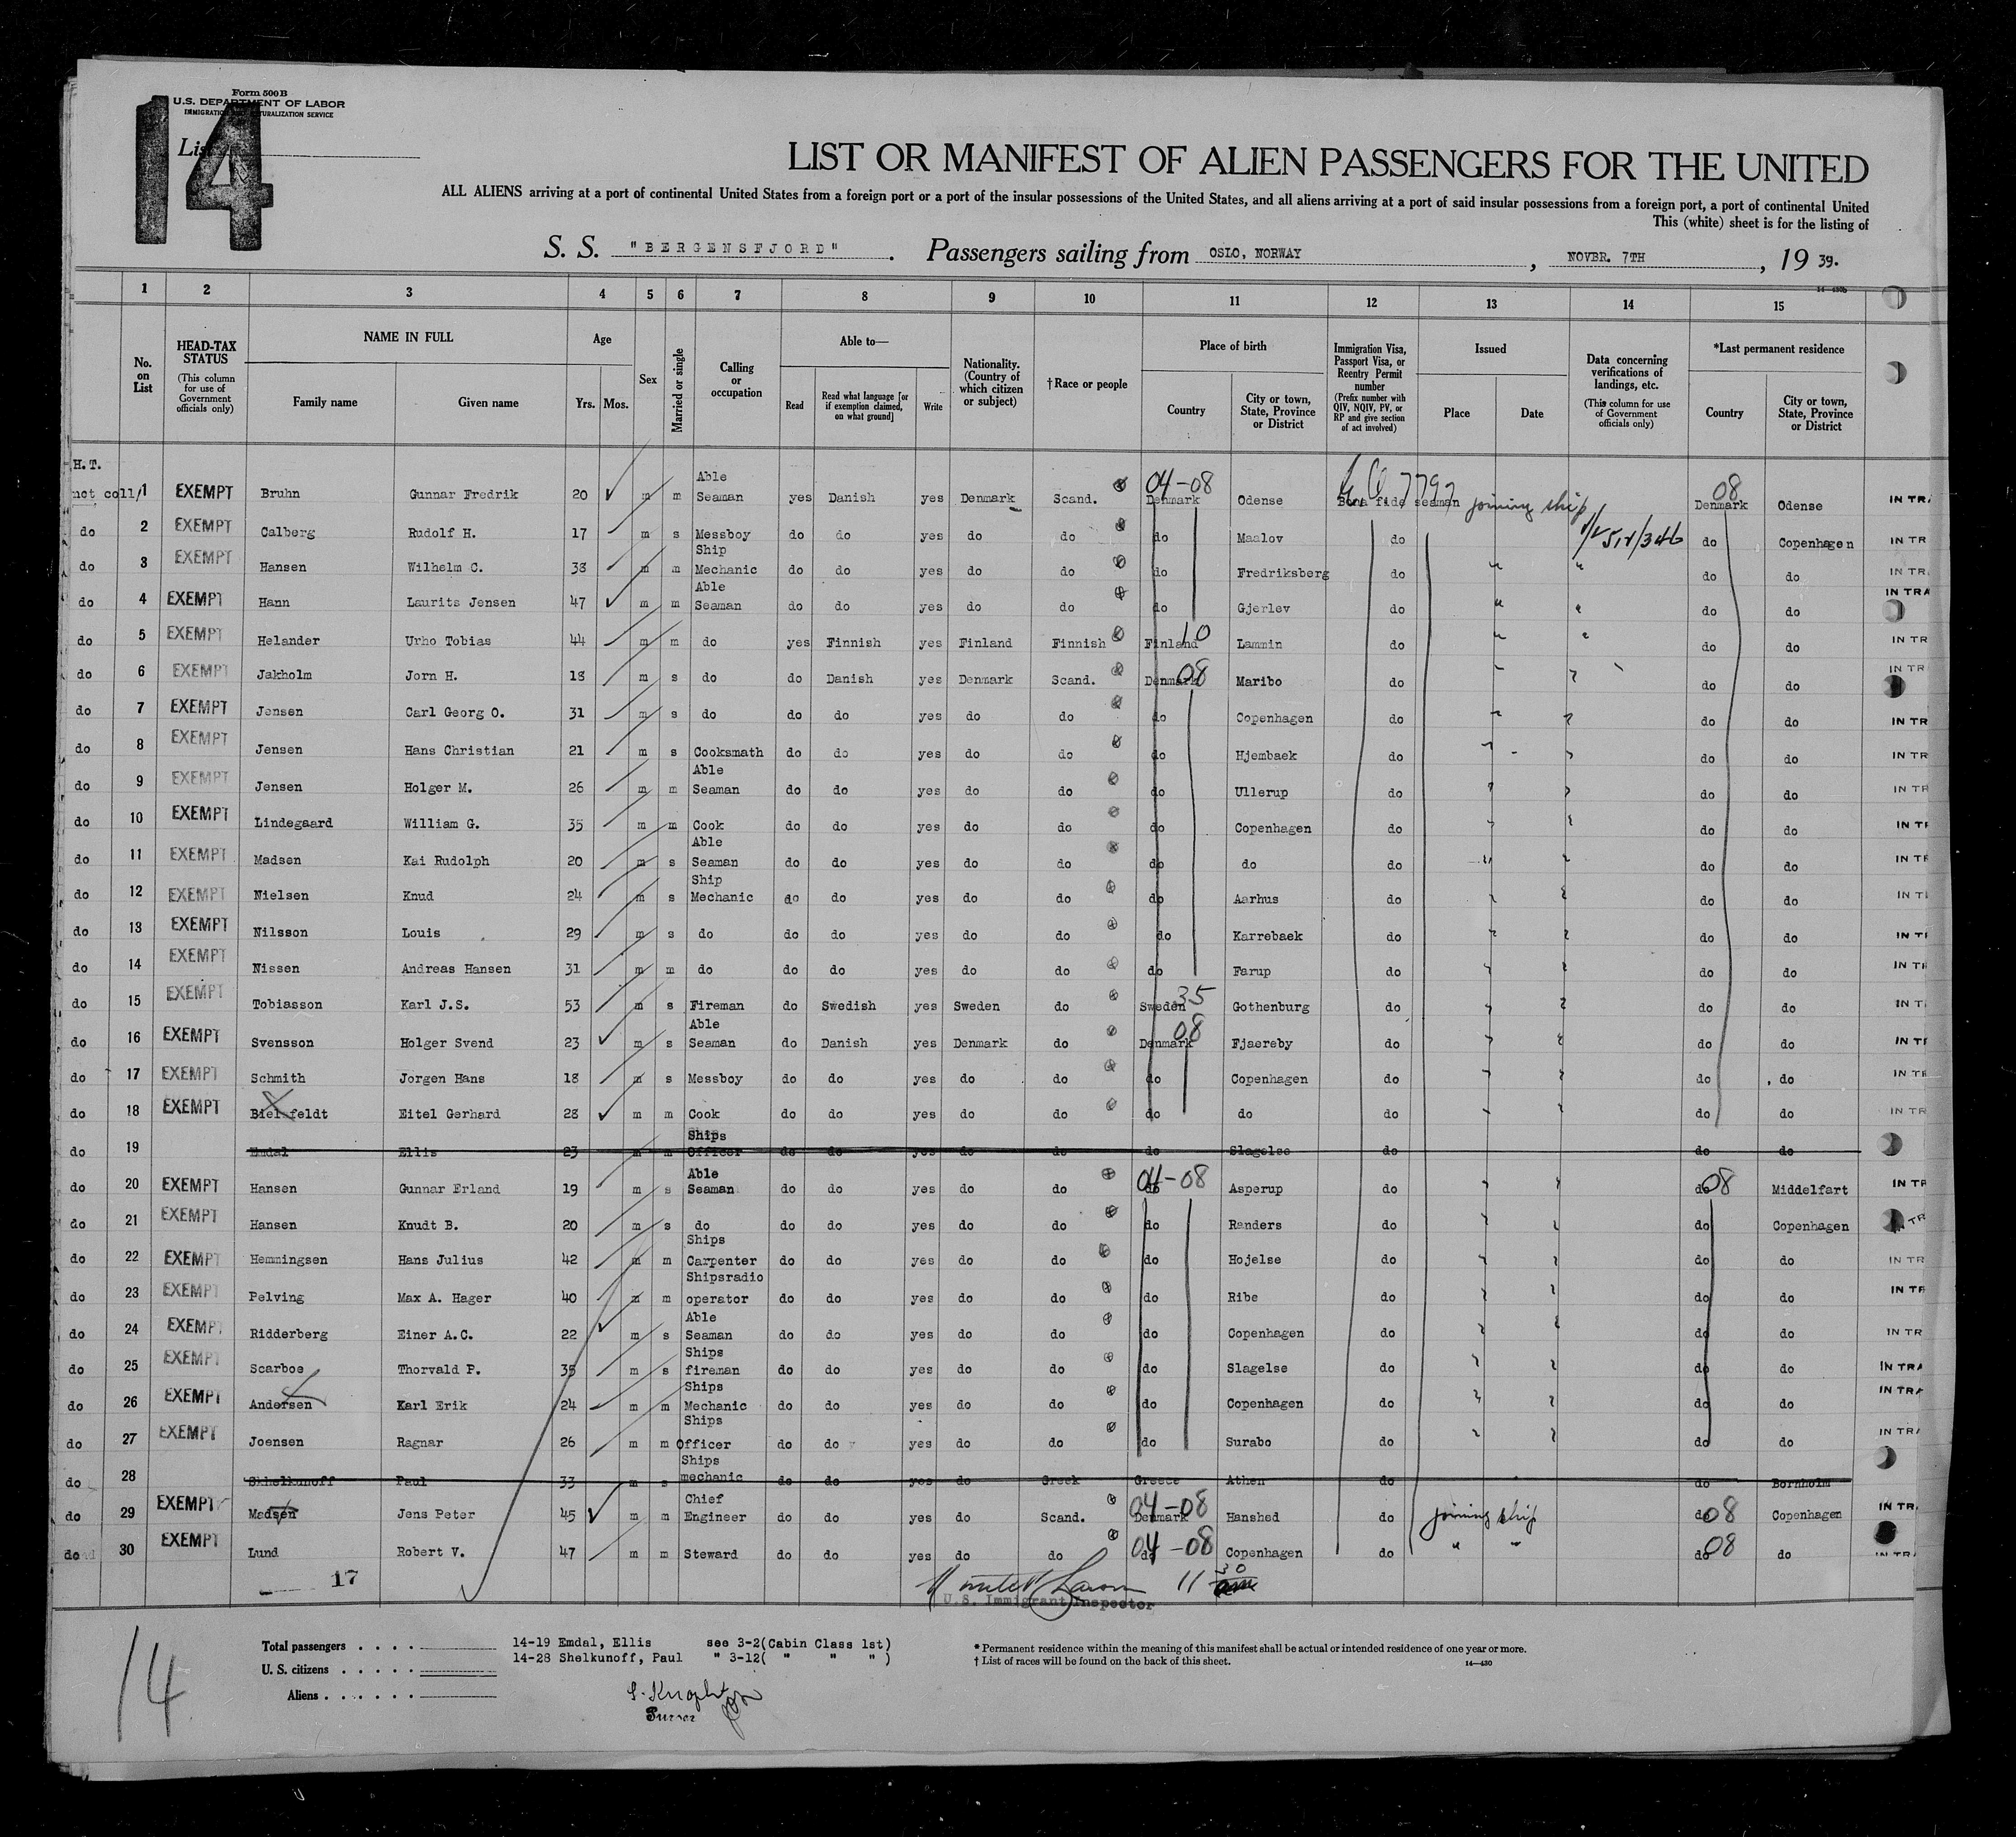 Form 500B
U.S. DEPARTMENT OF LABOR
IMMIGRATION AND NATURALIZATION SERVICE
14
List
LIST OR MANIFEST OF ALIEN PASSENGERS FOR THE UNITED
ALL ALIENS arriving at a port of continental United States from a foreign port or a port of the insular possessions of the United States, and all aliens arriving at a port of said insular possessions from a foreign port, a port of continental United
This (white) sheet is for the listing of
S. S. "BERGENSFJORD". Passengers sailing from OSLO, NORWAY, NOVBR. 7TH, 19 39.
14—430b
1 2 3 4 5 6 7 8 9 10 11 12 13 14 15
No. on List
HEAD-TAX STATUS (This column for use of Government officials only)
NAME IN FULL
Family name Given name
Age Yrs. Mos.
Sex
Married or single
Calling or occupation
Able to— Read Read what language [or if exemption claimed, on what ground] Write
Nationality. (Country of which citizen or subject)
†Race or people
Place of birth Country City or town, State, Province or District
Immigration Visa, Passport Visa, or Reentry Permit number (Prefix number with QIV, NQIV, PV, or RP and give section of act involved)
Issued Place Date
Data concerning verifications of landings, etc. (This column for use of Government officials only)
*Last permanent residence Country City or town, State, Province or District
H.T.
not coll/ 1 EXEMPT Bruhn Gunnar Fredrik 20 m m Able Seaman yes Danish yes Denmark Scand. 04-08 Denmark Odense Bona fide seaman joining ship 08 Denmark Odense IN TRA
do 2 EXEMPT Calberg Rudolf H. 17 m s Messboy do do yes do do do Maalov do do Copenhagen IN TR
do 3 EXEMPT Hansen Wilhelm C. 38 m m Ship Mechanic do do yes do do do Fredriksberg do " " do do IN TR
do 4 EXEMPT Hann Laurits Jensen 47 m m Able Seaman do do yes do do do Gjerlev do " " do do IN TRA
do 5 EXEMPT Helander Urho Tobias 44 m m do yes Finnish yes Finland Finnish Finland 10 Lammin do " " do do IN TR
do 6 EXEMPT Jakholm Jorn H. 18 m s do do Danish yes Denmark Scand. Denmark 08 Maribo do " " do do IN TR
do 7 EXEMPT Jensen Carl Georg O. 31 m s do do do yes do do do Copenhagen do " " do do IN TR
do 8 EXEMPT Jensen Hans Christian 21 m s Cooksmath do do yes do do do Hjembaek do " " do do IN TR
do 9 EXEMPT Jensen Holger M. 26 m m Able Seaman do do yes do do do Ullerup do " " do do IN TR
do 10 EXEMPT Lindegaard William G. 35 m m Cook do do yes do do do Copenhagen do " " do do IN TR
do 11 EXEMPT Madsen Kai Rudolph 20 m s Able Seaman do do yes do do do do do " " do do IN TR
do 12 EXEMPT Nielsen Knud 24 m s Ship Mechanic do do yes do do do Aarhus do " " do do IN TR
do 13 EXEMPT Nilsson Louis 29 m s do do do yes do do do Karrebaek do " " do do IN TR
do 14 EXEMPT Nissen Andreas Hansen 31 m m do do do yes do do do Farup do " " do do IN TR
do 15 EXEMPT Tobiasson Karl J.S. 53 m s Fireman do Swedish yes Sweden do Sweden 35 Gothenburg do " " do do IN T
do 16 EXEMPT Svensson Holger Svend 23 m s Able Seaman do Danish yes Denmark do Denmark 08 Fjaereby do " " do do IN TR
do 17 EXEMPT Schmith Jorgen Hans 18 m s Messboy do do yes do do do Copenhagen do " " do do IN TR
do 18 EXEMPT Bielefeldt Eitel Gerhard 28 m m Cook do do yes do do do do do " " do do IN TR
do 19 Emdal Ellis 23 m m Ships Officer do do yes do do do Slagelse do do do
do 20 EXEMPT Hansen Gunnar Erland 19 m s Able Seaman do do yes do do 04-08 do Asperup do " " do 08 Middelfart IN TR
do 21 EXEMPT Hansen Knudt B. 20 m s do do do yes do do do Randers do " " do Copenhagen IN TR
do 22 EXEMPT Hemmingsen Hans Julius 42 m m Ships Carpenter do do yes do do do Hojelse do " " do do IN TR
do 23 EXEMPT Pelving Max A. Hager 40 m m Shipsradio operator do do yes do do do Ribe do " " do do IN TR
do 24 EXEMPT Ridderberg Einer A.C. 22 m s Able Seaman do do yes do do do Copenhagen do " " do do IN TR
do 25 EXEMPT Scarboe Thorvald P. 35 m s Ships fireman do do yes do do do Slagelse do " " do do IN TRA
do 26 EXEMPT Andersen Karl Erik 24 m m Ships Mechanic do do yes do do do Copenhagen do " " do do IN TRA
do 27 EXEMPT Joensen Ragnar 26 m m Ships Officer do do yes do do do Surabo do " " do do IN TRA
do 28 Skhelkunoff Paul 33 m s Ships mechanic do do yes do Greek Greece Athen do do Bornholm
do 29 EXEMPT Madsen Jens Peter 45 m m Chief Engineer do do yes do Scand. 04-08 Denmark Hanshed do joining ship do 08 Copenhagen IN TR
do 30 EXEMPT Lund Robert V. 47 m m Steward do do yes do do 04-08 do Copenhagen do " " do 08 do IN TRA
17
U.S. Immigrant Inspector
14
Total passengers
U. S. citizens
Aliens
14-19 Emdal, Ellis see 3-2(Cabin Class 1st)
14-28 Shelkunoff, Paul " 3-12( " " " )
Purser
* Permanent residence within the meaning of this manifest shall be actual or intended residence of one year or more.
† List of races will be found on the back of this sheet.
14—430